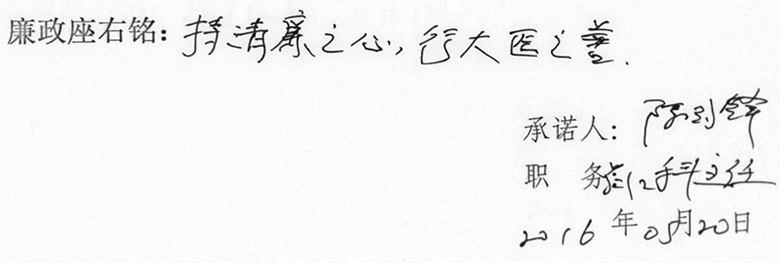 廉政座右铭：持清廉之心，行大医之善.
承诺人：陈剑锋
职 务 科主任
2016年05月20日